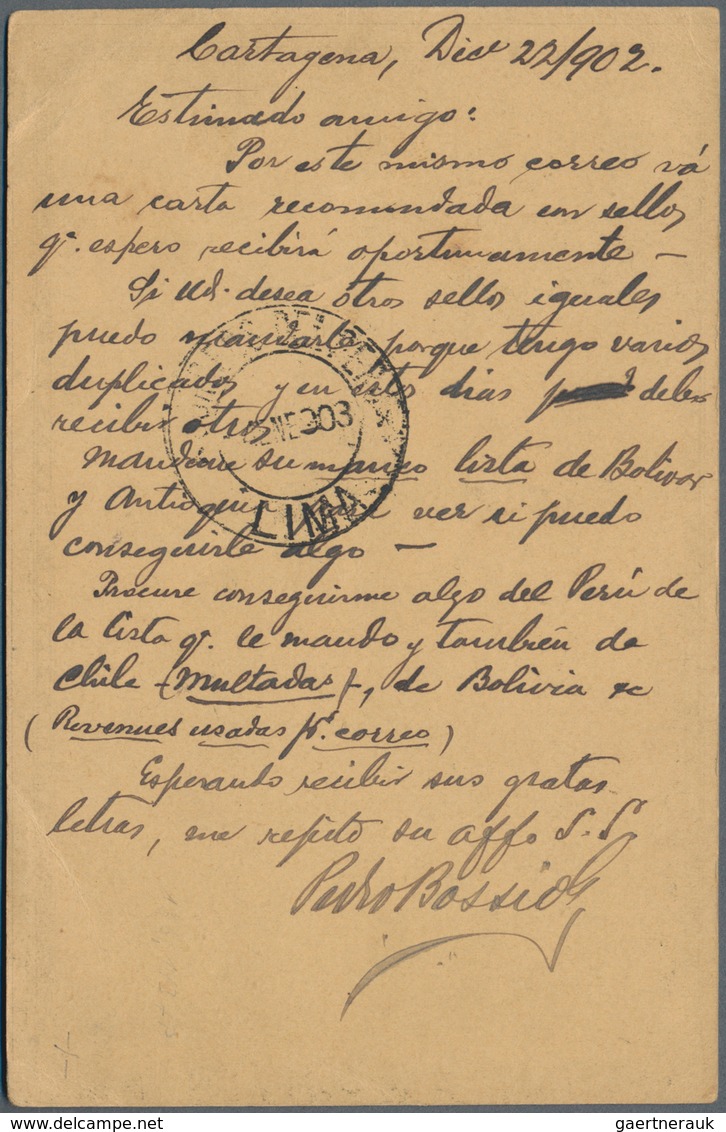 Cartagena, Dicᵉ 22/902.
Estimado amigo:
Por este mismo correo vá
una carta recomendada con sellos
qᵉ. espero recibirá oportunamente —
Si Ud. desea otros sellos iguales
puedo mandarle porque tengo varios
duplicados y en estos dias debo
recibir otros
Mandeme su manco lista de Bolivar
y Antioquia para ver si puedo
conseguirle algo —
Procure conseguirme algo del Perú de
la lista qᵉ. le mando y también de
Chile (Multadas)-, de Bolivia &c
(Revenues usadas pʳ. correo)
Esperando recibir sus gratas
letras, me repito su affo S.S.
Pedro Bossio
ENE 903
LIMA
gaertnerauk